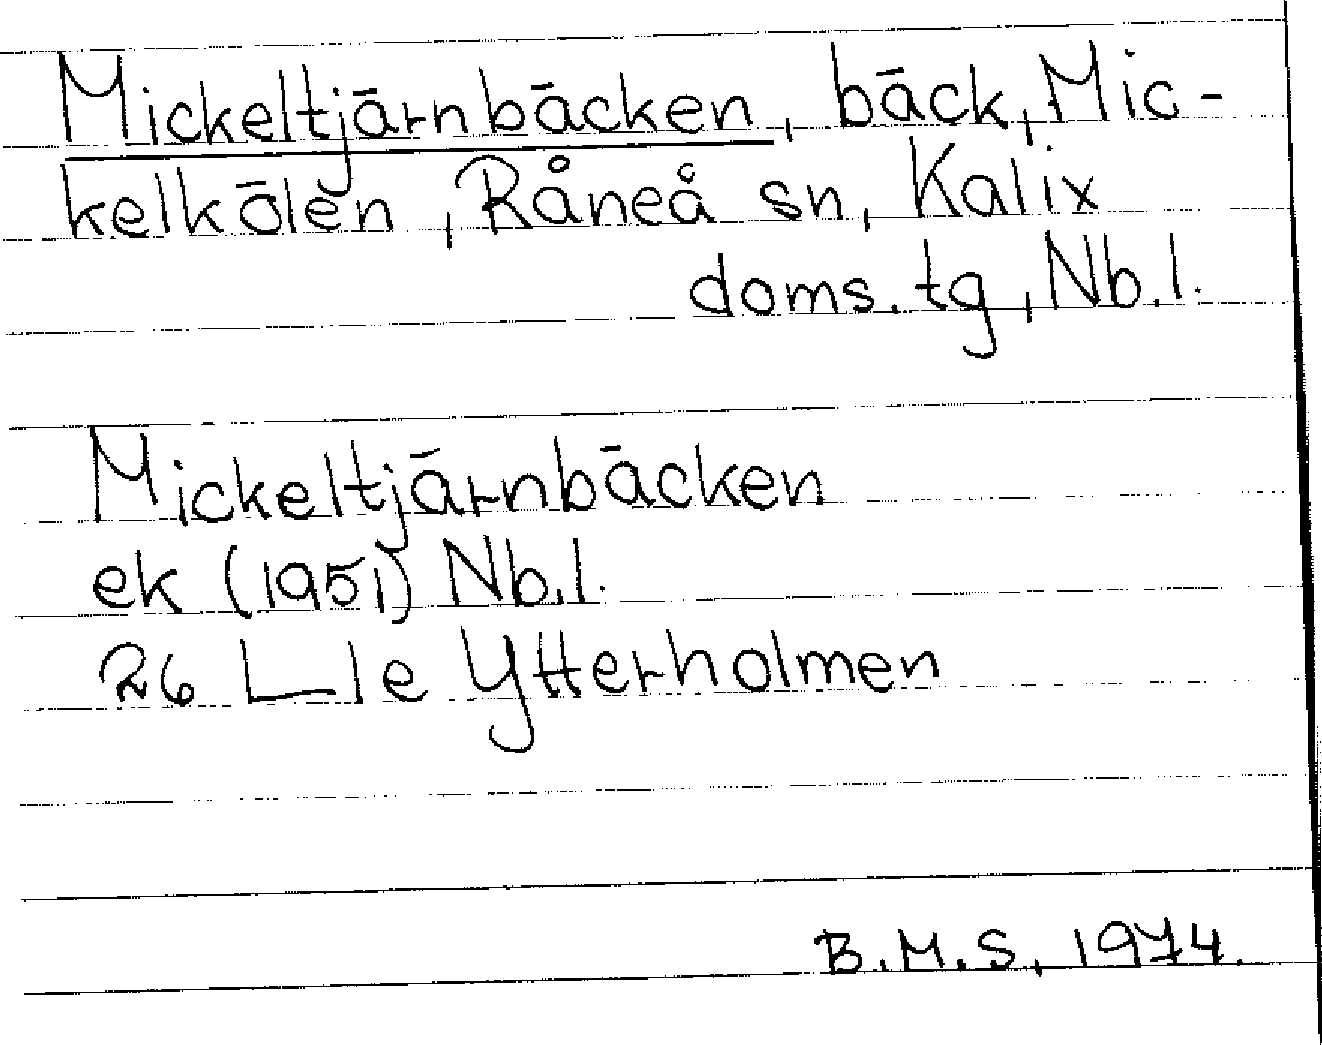 Mickeltjärnbäcken, bäck, Mic-
kelkölen, Råneå sn, Kalix
doms. tg, Nb.l.
Mickeltjärnbäcken
ek (1951) Nb.l.
26 L l e Ytterholmen
B.M.S, 1974.